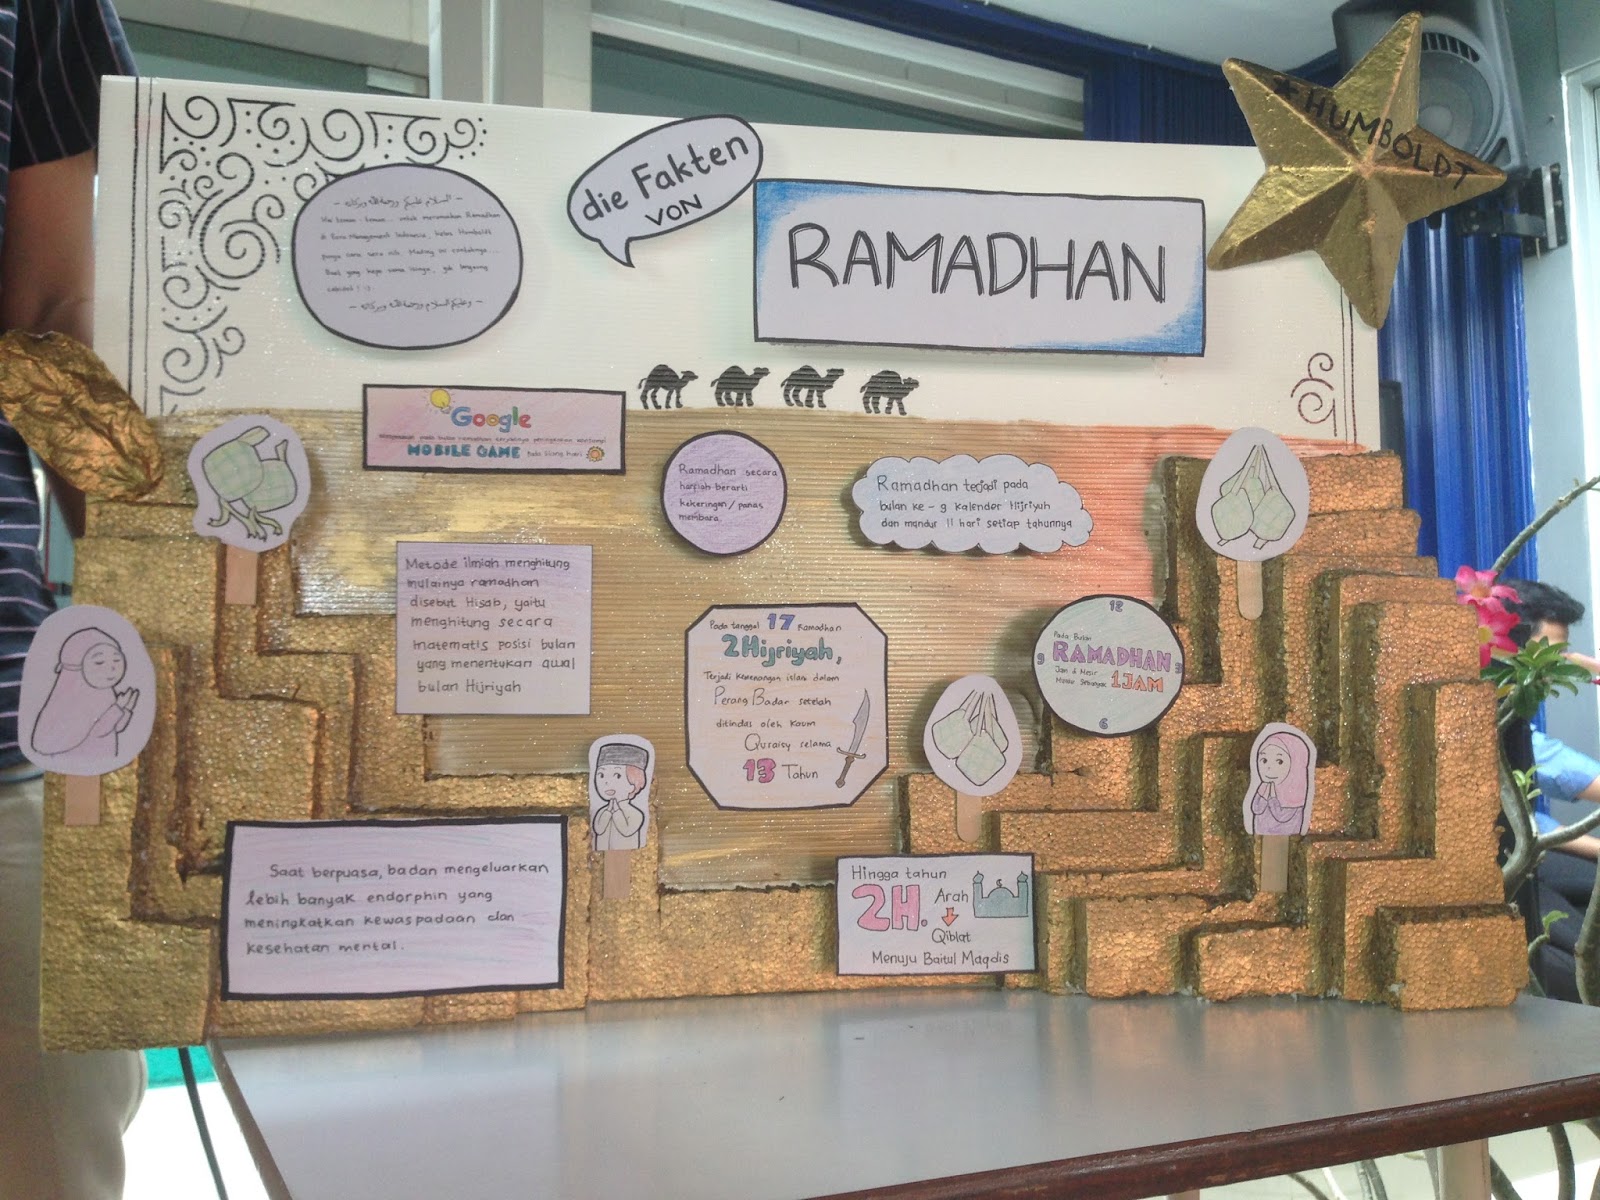 - السلام عليكم ورحمة الله وبركاته -
Hai teman - teman... untuk meramaikan Ramadhan
di Euro Management Indonesia, kelas Humboldt
punya cara seru nih. Mading ini contohnya...
Buat yang kepo sama isinya, yuk langsung
- وعليكم السلام ورحمة الله وبركاته -
die Fakten
VON
RAMADHAN
★ HUMBOLDT
Google
pada bulan ramadhan terjadinya peningkatan
MOBILE GAME pada siang hari
Ramadhan secara
harfiah berarti
kekeringan/panas
membara.
Ramadhan terjadi pada
bulan ke-9 kalender Hijriyuh
dan mandur 11 hari setiap tahunnya
Metode ilmiah menghitung
mulainya ramadhan
disebut Hisab, yaitu
menghitung secara
matematis posisi bulan
yang menentukan awal
bulan Hijriyah
Pada tanggal 17 Ramadhan
2Hijriyah,
Terjadi kemenangan islam dalam
Perang Badar setelah
ditindas oleh kaum
Quraisy selama
13 Tahun
12
Pada Bulan
9 RAMADHAN 3
Jam di Mesir
Maju Sebanyak 1JAM
6
Saat berpuasa, badan mengeluarkan
lebih banyak endorphin yang
meningkatkan kewaspadaan dan
kesehatan mental.
Hingga tahun
2H. Arah
Qiblat
Menuju Baitul Maqdis